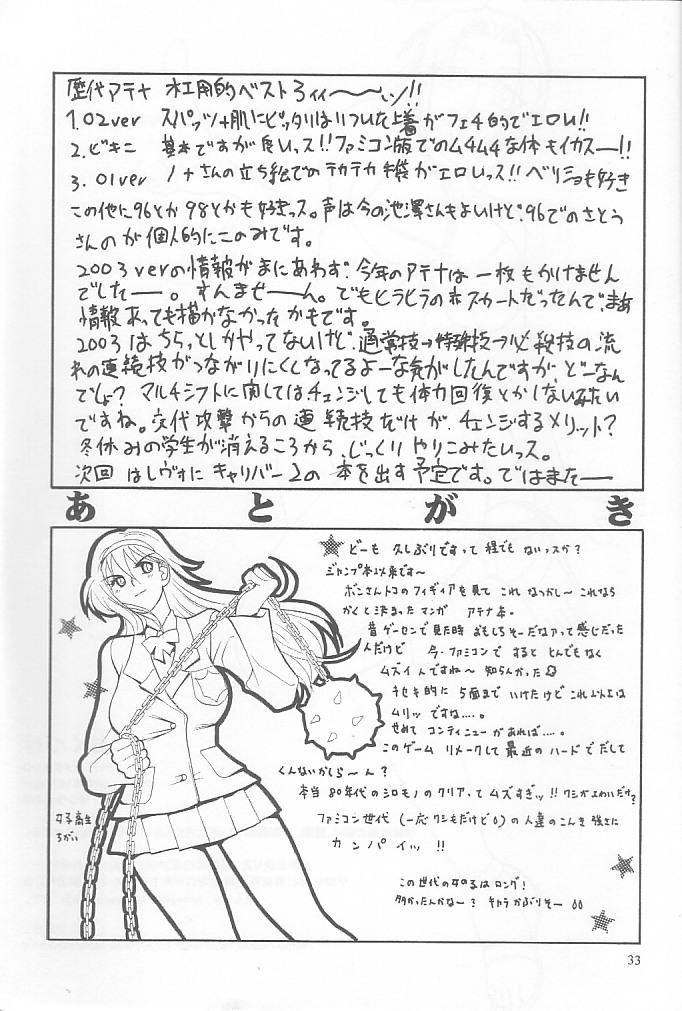 歴代アテナ 水工用的ベスト3ィィ〜〜ッ!!
1.02ver スパッツ+肌にピッタリはりついた上着がフェチ的でエロい!!
2.ビキニ 基本ですが良いっス!!ファミコン版でのムチムチな体もイカスー!!
3.01ver ノナさんの立ち絵でのテカテカ手袋がエロいっス!!ベリショも好き
この他に96とか98とかも好きっス。声は今の池澤さんもよいけど、96でのさとう
さんのが個人的にこのみです。
2003verの情報がまにあわず、今年のアテナは一枚もかけません
でしたー。すんませーん。でもヒラヒラの赤スカートだったんで、まあ
情報あっても描かなかったかもです。
2003はちらっとしかやってないけど、通常技→特殊技→必殺技の流
れの連続技がつながりにくくなってるよーな気がしたんですが、どーなん
でしょ?マルチシフトに関してはチェンジしても体力回復とかしないみたい
ですね。交代攻撃からの連続技だけが、チェンジするメリット?
冬休みの学生が消えるころから、じっくりやりこみたいっス。
次回はレヴォにキャリバー2の本を出す予定です。ではまたー
あとがき
どーも 久しぶりですって程でもないっスか?
ジャンプ本以来です〜
ボンさんトコのフィギィアを見て これ なっかし〜 これなら
かくと決まったマンガ アテナ本。
昔ゲーセンで見た時 おもしろそーだなァって感じだった
んだけど 今・ファミコンで すると とんでもなく
ムズイんですね〜 知らんかった
キセキ的に 5面まで いけたけど これ以上は
ムリッ ですね....。
せめて コンティニューがあれば....。
このゲーム リメークして 最近の ハードで だして
くんないかしら〜ん?
本当 80年代の シロモノの クリアって ムズすぎッ!!ワシがよわいだけ?
ファミコン世代 (一応 ワシもだけど) の人達の こんき 強さに
カンパイッ !!
女子高生
3がい
この世代の女の子はロング!
多かったんかなー? キャラ かぶりそー
33